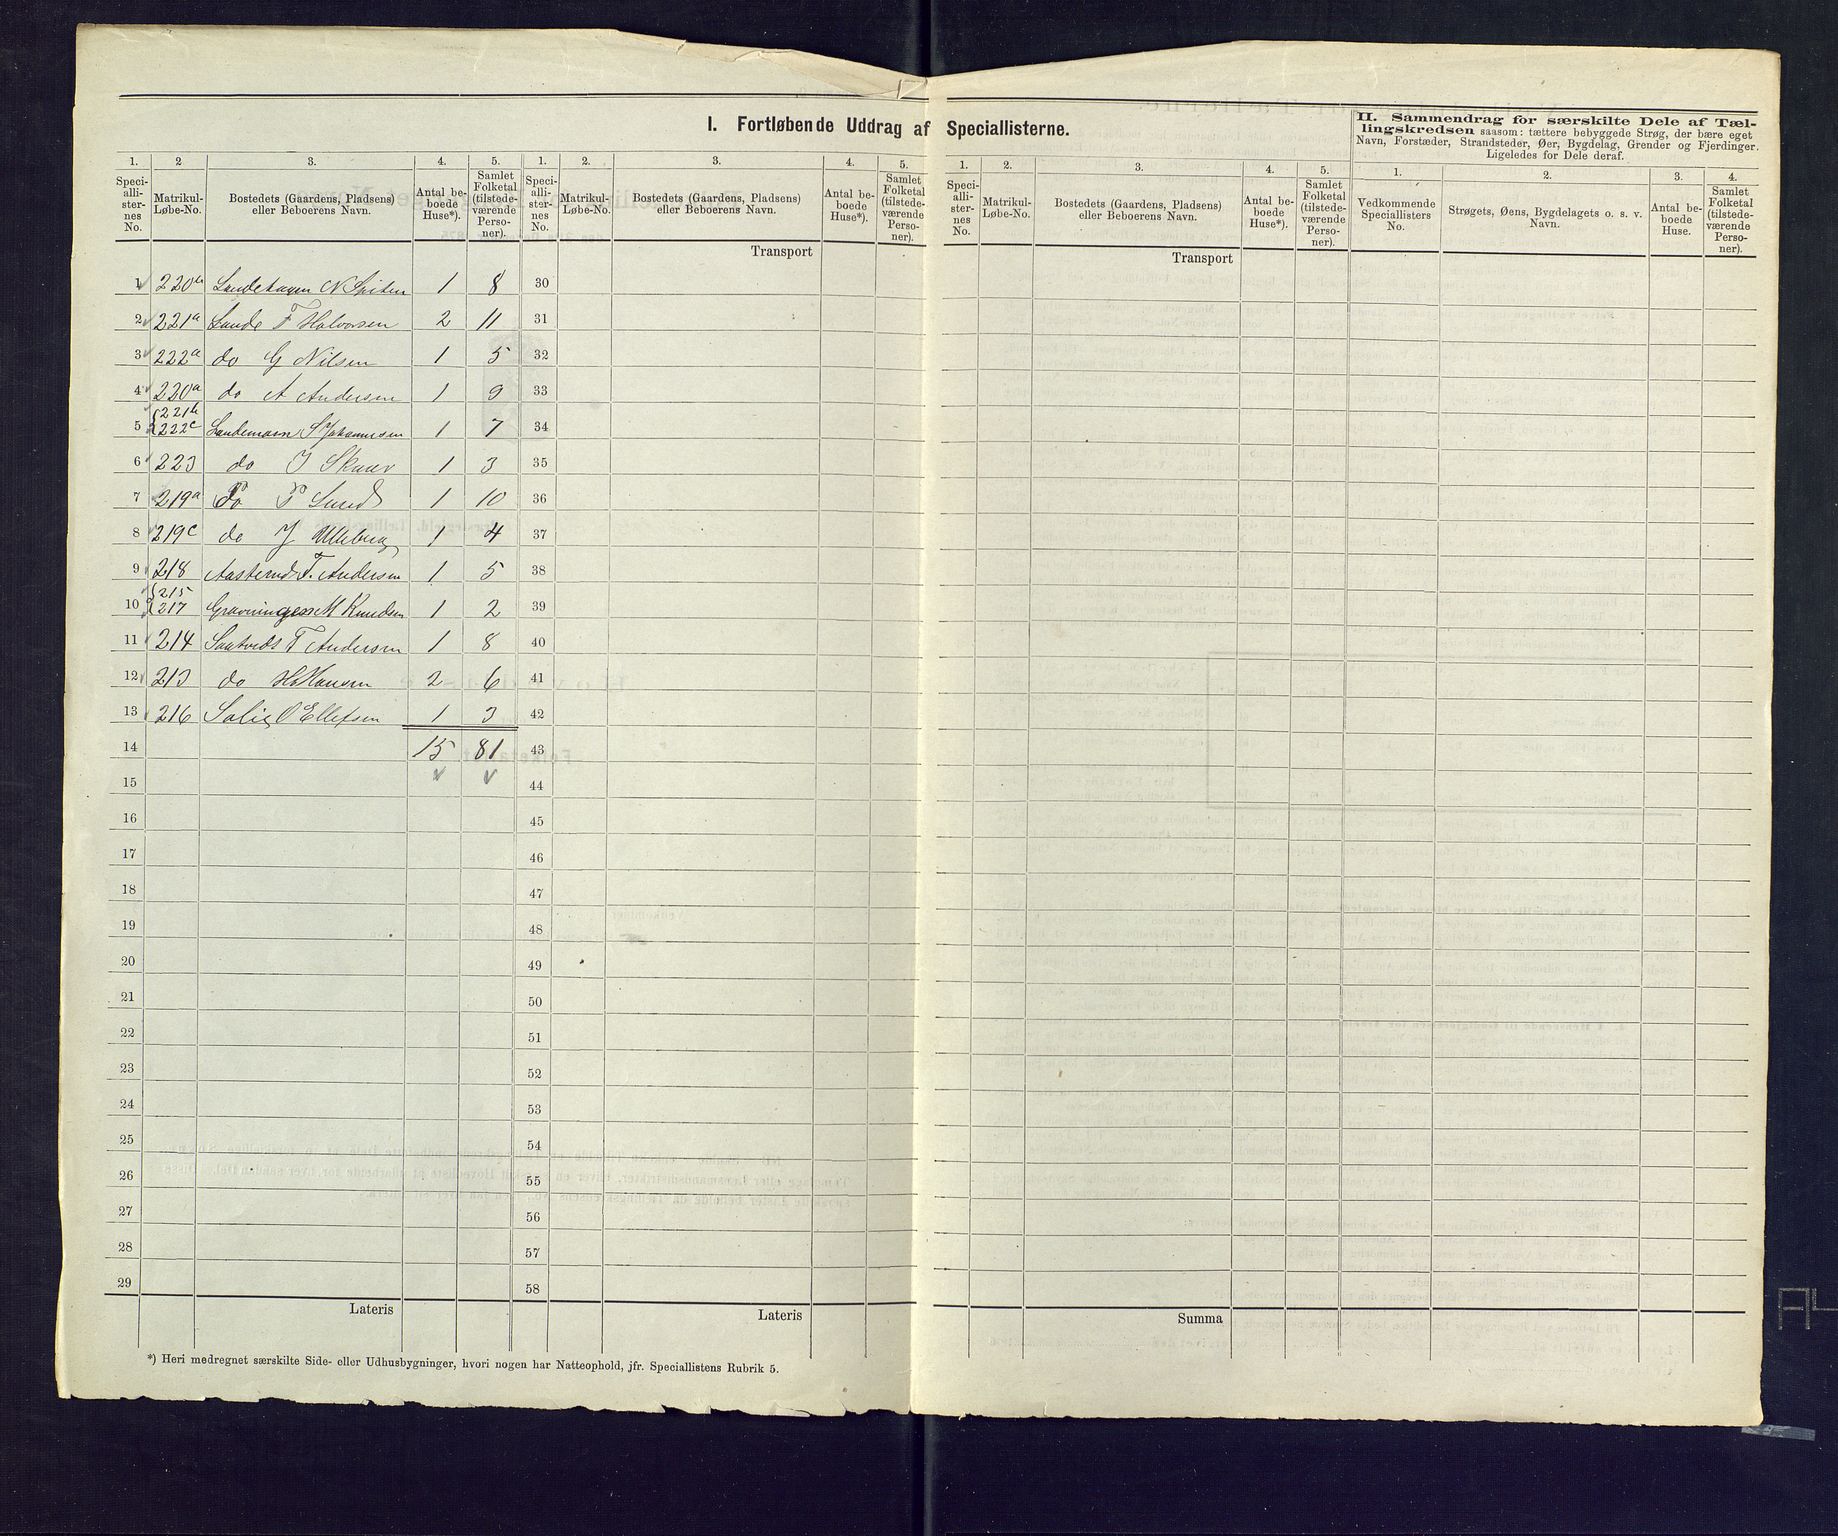 I. Fortløbende Uddrag af Speciallisterne.
II. Sammendrag for særskilte Dele af Tæl-
lingskredsen saasom: tættere bebyggede Strøg, der bære eget
Navn, Forstæder, Strandsteder, Øer, Bygdelag, Grender og Fjerdinger.
Ligeledes for Dele deraf.
1. 2 3. 4. 5. 1. 2. 3. 4. 5. 1. 2. 3. 4. 5. 1. 2. 3. 4.
Speci-alli-ster-nes No. Matrikul-Løbe-No. Bostedets (Gaardens, Pladsens) eller Beboerens Navn. Antal be-boede Huse*). Samlet Folketal (tilstede-værende Perso-ner).
Speci-alli-ster-nes No. Matrikul-Løbe-No. Bostedets (Gaardens, Pladsens) eller Beboerens Navn. Antal be-boede Huse*). Samlet Folketal (tilstede-værende Perso-ner).
Speci-alli-ster-nes No. Matrikul-Løbe-No. Bostedets (Gaardens, Pladsens) eller Beboerens Navn. Antal be-boede Huse*). Samlet Folketal (tilstede-værende Perso-ner).
Vedkommende Speciallisters No. Strøgets, Øens, Bygdelagets o. s. v. Navn. Antal be-boede Huse. Samlet Folketal (tilstede-værende Perso-ner).
Transport Transport
1 220b N 1 8 30
2 221a Lunde F Halvorsen 2 11 31
3 222a do G Nilsen 1 5 32
4 220a do A Andersen 1 9 33
221b
5 222c S Johannesen 1 7 34
6 223 do J Skauv 1 3 35
7 219a Do P Lund 1 10 36
8 219c do J Ulleberg 1 4 37
9 218 F. Andersen 1 5 38
215
10 217 M Knudsen 1 2 39
11 214 F Andersen 1 8 40
12 213 do H Hansen 2 6 41
13 216 Solie O Ellefsen 1 3 42
14 15 81 43
15 44
16 45
17 46
18 47
19 48
20 49
21 50
22 51
23 52
24 53
25 54
26 55
27 56
28 57
29 58
Lateris Lateris Summa
*) Heri medregnet særskilte Side- eller Udhusbygninger, hvori nogen har Natteophold, jfr. Speciallistens Rubrik 5.